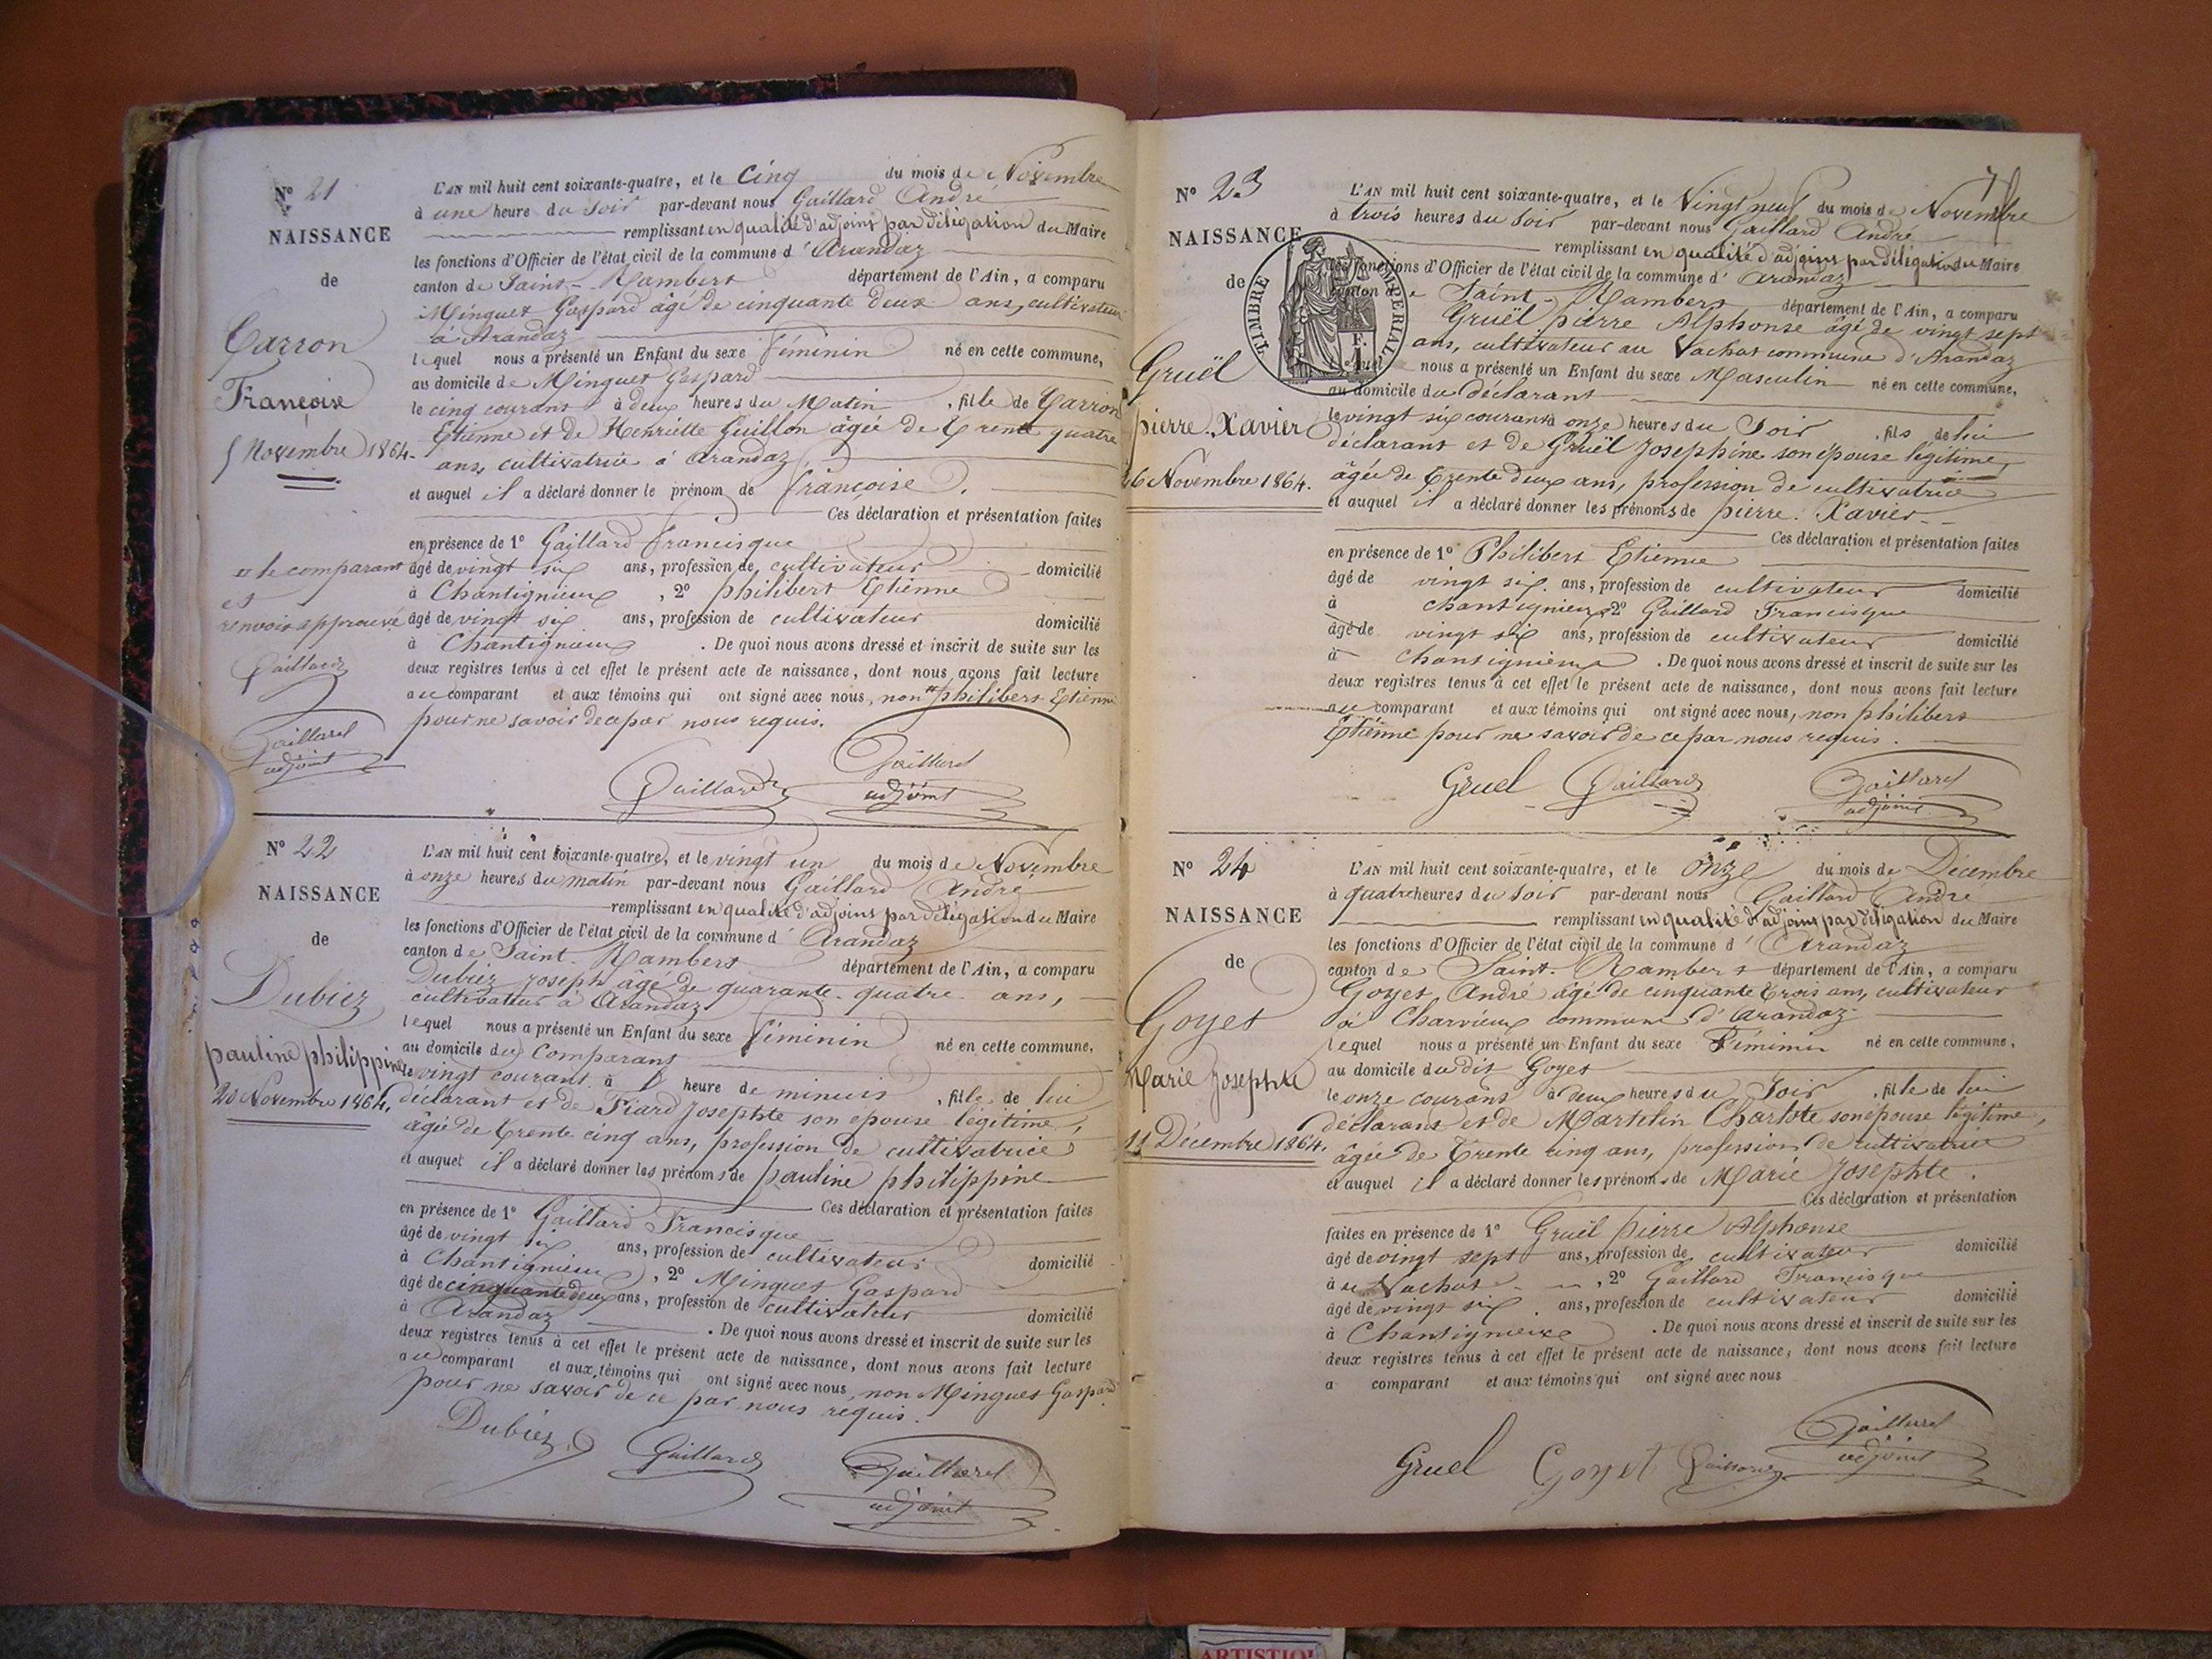 N° 21
NAISSANCE
de
Carron
Françoise
5 Novembre 1864.
L'AN mil huit cent soixante-quatre, et le Cinq du mois de Novembre
à une heure du Soir par-devant nous Gaillard André
remplissant en qualité d'adjoint par déligation du Maire
les fonctions d'Officier de l'état civil de la commune d'Arandaz
canton de Saint-Rambert département de l'Ain, a comparu
Minguet Gaspard âgé de cinquante deux ans, cultivateur
à Arandaz
lequel nous a présenté un Enfant du sexe féminin né en cette commune,
au domicile de Minguet Gaspard
le cinq courant à deux heures du Matin, fille de Carron
Etienne et de Henriette Guillon âgée de Trente quatre
ans, cultivatrice à Arandaz
et auquel il a déclaré donner le prénom de françoise.
Ces déclaration et présentation faites
en présence de 1° Gaillard francisque
âgé de vingt six ans, profession de cultivateur domicilié
à Chantignieux, 2° philibert Etienne
âgé de vingt six ans, profession de cultivateur domicilié
à Chantignieux. De quoi nous avons dressé et inscrit de suite sur les
deux registres tenus à cet effet le présent acte de naissance, dont nous avons fait lecture
au comparant et aux témoins qui ont signé avec nous, non philibert Etienne
pour ne savoir de ce par nous requis.
et le comparant
et
renvois approuvé
Gaillard
Gaillard
adjoint
Gaillard
Gaillard
adjoint
N° 22
NAISSANCE
de
Dubiez
pauline philippine
20 Novembre 1864.
L'AN mil huit cent soixante-quatre, et le vingt un du mois de Novembre
à onze heures du matin par-devant nous Gaillard André
remplissant en qualité d'adjoint par déligation du Maire
les fonctions d'Officier de l'état civil de la commune d'Arandaz
canton de Saint-Rambert département de l'Ain, a comparu
Dubiez Joseph âgé de quarante-quatre ans,
cultivateur à Arandaz
lequel nous a présenté un Enfant du sexe féminin né en cette commune,
au domicile du Comparant
le vingt courant à heure de minuit, fille de lui
déclarant et de Fiard Josephte son épouse légitime,
âgée de Trente cinq ans, profession de cultivatrice
et auquel il a déclaré donner les prénoms de pauline philippine
Ces déclaration et présentation faites
en présence de 1° Gaillard Francisque
âgé de vingt six ans, profession de cultivateur domicilié
à Chantignieux, 2° Minguet Gaspard
âgé de cinquante deux ans, profession de cultivateur domicilié
à Arandaz. De quoi nous avons dressé et inscrit de suite sur les
deux registres tenus à cet effet le présent acte de naissance, dont nous avons fait lecture
au comparant et aux témoins qui ont signé avec nous, non Minguet Gaspard
pour ne savoir de ce par nous requis.
Dubiez
Gaillard
Gaillard
adjoint
7
N° 23
NAISSANCE
de
TIMBRE IMPERIAL
F.
1
Gruël
pierre Xavier
26 Novembre 1864.
L'AN mil huit cent soixante-quatre, et le Vingt neuf du mois de Novembre
à trois heures du Soir par-devant nous Gaillard André
remplissant en qualité d'adjoint par déligation du Maire
les fonctions d'Officier de l'état civil de la commune d'Arandaz
canton de Saint-Rambert département de l'Ain, a comparu
Gruël pierre Alphonse âgé de vingt sept
ans, cultivateur au Vachat commune d'Arandaz
lequel nous a présenté un Enfant du sexe Masculin né en cette commune,
au domicile du déclarant
le vingt six courant à onze heures du Soir, fils de lui
déclarant et de Gruël Josephine son épouse légitime,
âgée de Trente deux ans, profession de cultivatrice
et auquel il a déclaré donner les prénoms de pierre Xavier
Ces déclaration et présentation faites
en présence de 1° Philibert Etienne
âgé de vingt six ans, profession de cultivateur domicilié
à chantignieux 2° Gaillard Francisque
âgé de vingt six ans, profession de cultivateur domicilié
à Chantignieux. De quoi nous avons dressé et inscrit de suite sur les
deux registres tenus à cet effet le présent acte de naissance, dont nous avons fait lecture
au comparant et aux témoins qui ont signé avec nous, non philibert
Etienne pour ne savoir de ce par nous requis.
Gruel
Gaillard
Gaillard
adjoint
N° 24
NAISSANCE
de
Goyet
Marie Josephte
11 Décembre 1864.
L'AN mil huit cent soixante-quatre, et le onze du mois de Décembre
à quatre heures du Soir par-devant nous Gaillard André
remplissant en qualité d'adjoint par déligation du Maire
les fonctions d'Officier de l'état civil de la commune d'Arandaz
canton de Saint-Rambert département de l'Ain, a comparu
Goyet André âgé de cinquante trois ans, cultivateur
à Charvieux commune d'Arandaz
lequel nous a présenté un Enfant du sexe Féminin né en cette commune,
au domicile du dit Goyet
le onze courant à deux heures du Soir, fille de lui
déclarant et de Martelin Charlote son épouse légitime,
âgée de Trente cinq ans, profession de cultivatrice
et auquel il a déclaré donner les prénoms de Marie Josephte.
Ces déclaration et présentation
faites en présence de 1° Gruël pierre Alphonse
âgé de vingt sept ans, profession de cultivateur domicilié
à u Vachat, 2° Gaillard Francisque
âgé de vingt six ans, profession de cultivateur domicilié
à Chantignieux. De quoi nous avons dressé et inscrit de suite sur les
deux registres tenus à cet effet le présent acte de naissance, dont nous avons fait lecture
a comparant et aux témoins qui ont signé avec nous
Gruel
Goyet
Gaillard
Gaillard
adjoint